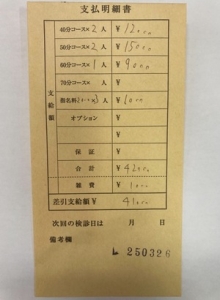 支払明細書
40分コース× 2 人 ¥ 12000
50分コース× 2 人 ¥ 15000
60分コース× 1 人 ¥ 9000
70分コース× 人 ¥
オプション ¥
¥
支給額
保証 ¥
合計 ¥
雑費 ¥ 1000
差引支給額 ¥ 41000
次回の検診日は 月 日
備考欄
250326